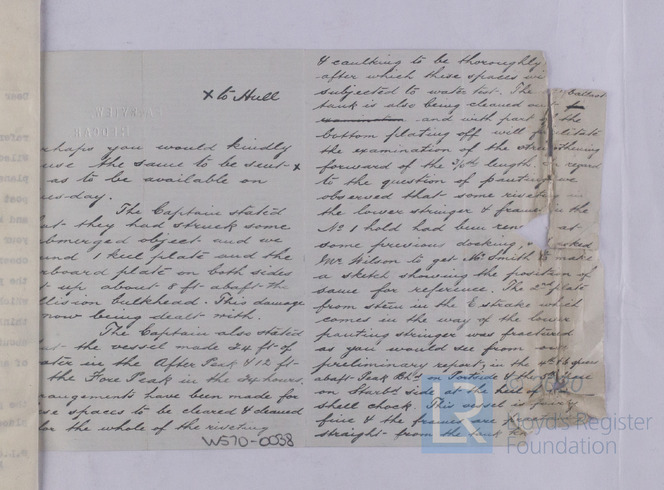 x to Hull
rhaps you would kindly
use the same to be sent x
as to be available on
esday.
The Captain stated
at they had struck some
bmerged object and we
und 1 keel plate and the
rboard plate on both sides
t up about 8 ft abaft the
llision bulkhead. This damage
now being dealt with.
The Captain also stated
at the vessel made 24 ft of
ater in the After Peak & 12 ft
the Fore Peak in the 24 hours.
rangements have been made for
se spaces to be cleared & cleaned
for the whole of the riveting
W570-0038
& caulking to be thoroughly
after which these spaces wi
subjected to water test. The ballast
tank is also being cleaned out
and with part the
bottom plating off will litate
the examination of the strengthening
forward of the 3/5ths length. regard
to the question of panting we
observed that some rivets in
the lower stringer & frames in the
No 1 hold had been ren at
some previous docking, asked
Mr Wilson to get Mr Smith to make
a sketch showing the position of
same for reference. The 2nd plate
from stem in the E strake which
comes in the way of the lower
panting stringer was fractured
as you would see from our
preliminary report, in the
abaft Peak Bhd Portside &
on Starbd side at the heel of
shell chock. This vessel is
fine & the frames are
straight from the tank
© 2020
Lloyd's Register
Foundation
LR